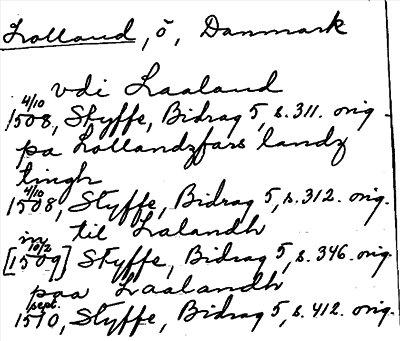 Lolland, ö, Danmark
vdi Laaland
4/10 1508, Styffe, Bidrag 5, s. 311. orig.
pa Lollandzfars landz
tingh
4/10 1508, Styffe, Bidrag 5, s. 312. orig.
in til Lalandh
[10/2 1509] Styffe, Bidrag 5, s. 346. orig.
paa Laalandh
sept. 1510, Styffe, Bidrag 5, s. 412. orig.